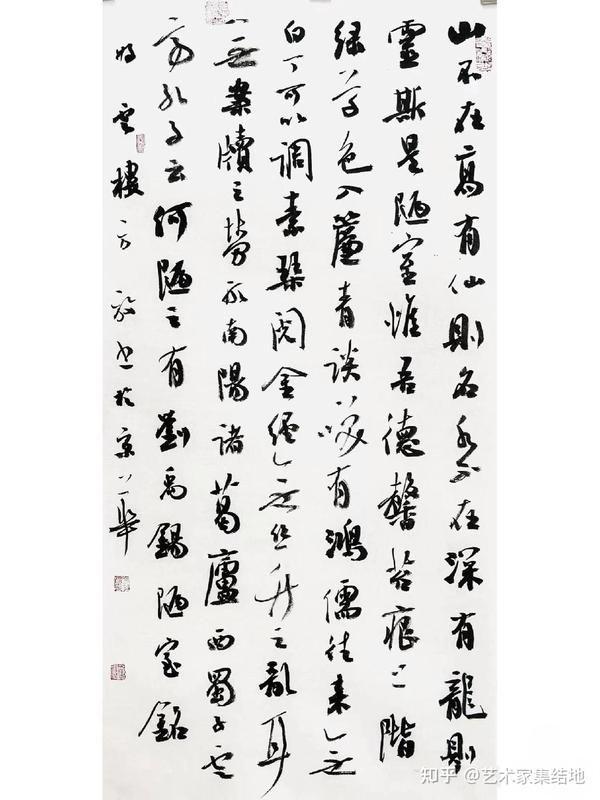 山不在高有仙則名水不在深有龍則
靈斯是陋室惟吾德馨苔痕上階
綠草色入簾青談笑有鴻儒往来無
白丁可以調素琴閱金經無丝竹之亂耳
無案牘之勞形南陽諸葛廬西蜀子雲
亭孔子云何陋之有劉禹錫陋室銘
雲樓方書於京華
知乎 @艺术家集结地